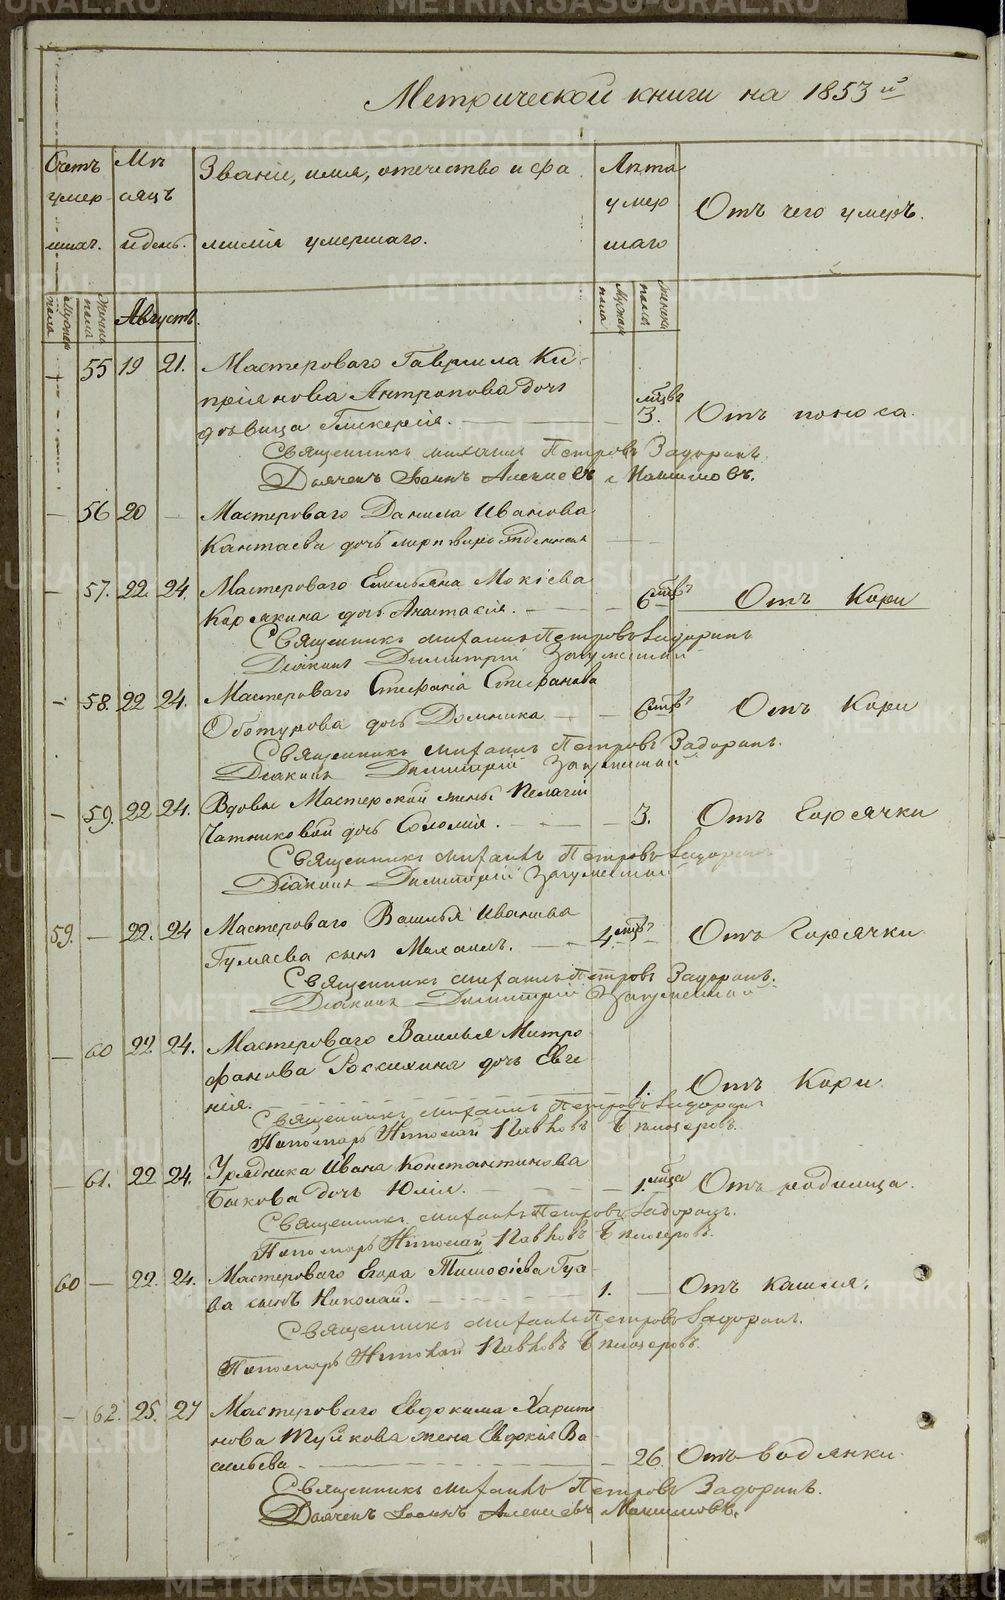 Метрической книги на 1853й
Счетъ умер- шихъ.
Мѣсяцъ и день.
Званіе, имя, отечество и фамилія умершаго.
Лѣта умершаго
Отъ чего умеръ.
Мужеска пола
Женска пола
Августъ.
Мужеска пола
Женска пола
— 55 19 21. Мастероваго Гавріила Ки-
пріянова Антропова дочь мѣсцъ
дѣвица Гликерія. — 3. Отъ поноса.
Священникъ Михаилъ Петровъ Задоринъ.
Дьячекъ Іоаннъ Алексѣевъ
— 56 20 — Мастероваго Данила Иванова
дочь мертворожденная —
— 57. 22. 24. Мастероваго Емельяна Мокіева
Корякина дочь Анастасія. — 6 мсцъ Отъ Кори
Священникъ Михаилъ Петровъ Задоринъ
Діаконъ Димитрій
— 58. 22 24. Мастероваго Стефана Стефанова
дочь Домника — 6 мсцъ Отъ Кори
Священникъ Михаилъ Петровъ Задоринъ.
Діаконъ Димитрій
— 59. 22 24. Вдовы Мастерской жены Пелагіи
дочь Соломія. — 3. Отъ Горячки
Священникъ Михаилъ Петровъ Задоринъ
Діаконъ Димитрій
59. — 22. 24 Мастероваго Василья Иванова
сынъ Михаилъ. — 4 мсцъ — Отъ Горячки
Священникъ Михаилъ Петровъ Задоринъ.
Діаконъ Димитрій
— 60 22 24. Мастероваго Василья Митро-
фанова дочь Евге-
нія. — 1. Отъ Кори.
Священникъ Михаилъ Петровъ Задоринъ
Пономарь Николай Павловъ Бѣлозеровъ.
— 61. 22 24. Урядника Ивана Константинова
Быкова дочь Юлія. — 1. мѣсца Отъ родимца.
Священникъ Михаилъ Петровъ Задоринъ.
Пономарь Николай Павловъ Бѣлозеровъ.
60 — 22. 24. Мастероваго Егора Тимофѣева Гу-
ва сынъ Николай. — 1. — Отъ кашля.
Священникъ Михаилъ Петровъ Задоринъ.
Пономарь Николай Павловъ Бѣлозеровъ.
— 62. 25. 27 Мастероваго Евдокима Харито-
нова жена Ва-
сильева — 26. Отъ водянки.
Священникъ Михаилъ Петровъ Задоринъ.
Дьячекъ Іоаннъ Алексѣевъ
METRIKI.GASO-URAL.RU